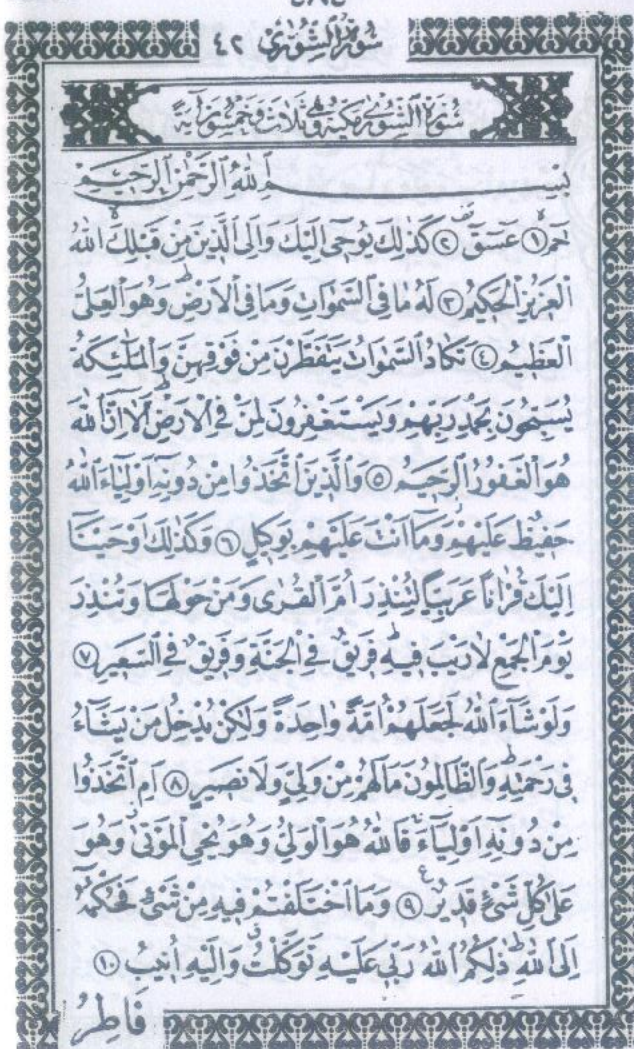 سُورَةُ الشُّورٰى ٤٢
سُورَةُ الشُّورٰى مَكِّيَّةٌ وَهِيَ ثَلَاثٌ وَخَمْسُونَ اٰيَةً
بِسْمِ اللّٰهِ الرَّحْمٰنِ الرَّحِيمِ
حٰمٓ ۚ ﴿١﴾ عٓسٓقٓ ﴿٢﴾ كَذٰلِكَ يُوحٖٓى اِلَيْكَ وَاِلَى الَّذٖينَ مِنْ قَبْلِكَۙ اللّٰهُ
الْعَزٖيزُ الْحَكٖيمُ ﴿٣﴾ لَهُ مَا فِى السَّمٰوَاتِ وَمَا فِى الْاَرْضِؕ وَهُوَ الْعَلِىُّ
الْعَظٖيمُ ﴿٤﴾ تَكَادُ السَّمٰوَاتُ يَتَفَطَّرْنَ مِنْ فَوْقِهِنَّ وَالْمَلٰٓئِكَةُ
يُسَبِّحُونَ بِحَمْدِ رَبِّهِمْ وَيَسْتَغْفِرُونَ لِمَنْ فِى الْاَرْضِؕ اَلَٓا اِنَّ اللّٰهَ
هُوَ الْغَفُورُ الرَّحٖيمُ ﴿٥﴾ وَالَّذٖينَ اتَّخَذُوا مِنْ دُونِهٖٓ اَوْلِيَٓاءَ اللّٰهُ
حَفٖيظٌ عَلَيْهِمْۘ وَمَٓا اَنْتَ عَلَيْهِمْ بِوَكٖيلٍ ﴿٦﴾ وَكَذٰلِكَ اَوْحَيْنَٓا
اِلَيْكَ قُرْاٰنًا عَرَبِيًّا لِتُنْذِرَ اُمَّ الْقُرٰى وَمَنْ حَوْلَهَا وَتُنْذِرَ
يَوْمَ الْجَمْعِ لَا رَيْبَ فٖيهِؕ فَرٖيقٌ فِى الْجَنَّةِ وَفَرٖيقٌ فِى السَّعٖيرِ ﴿٧﴾
وَلَوْ شَٓاءَ اللّٰهُ لَجَعَلَهُمْ اُمَّةً وَاحِدَةً وَلٰكِنْ يُدْخِلُ مَنْ يَشَٓاءُ
فٖى رَحْمَتِهٖؕ وَالظَّالِمُونَ مَا لَهُمْ مِنْ وَلِىٍّ وَلَا نَصٖيرٍ ﴿٨﴾ اَمِ اتَّخَذُوا
مِنْ دُونِهٖٓ اَوْلِيَٓاءَۚ فَاللّٰهُ هُوَ الْوَلِىُّ وَهُوَ يُحْيِى الْمَوْتٰىؗ وَهُوَ
عَلٰى كُلِّ شَىْءٍ قَدٖيرٌ ﴿٩﴾ وَمَا اخْتَلَفْتُمْ فٖيهِ مِنْ شَىْءٍ فَحُكْمُهُٓ
اِلَى اللّٰهِؕ ذٰلِكُمُ اللّٰهُ رَبّٖى عَلَيْهِ تَوَكَّلْتُۗ وَاِلَيْهِ اُنٖيبُ ﴿١٠﴾
فَاطِرُ